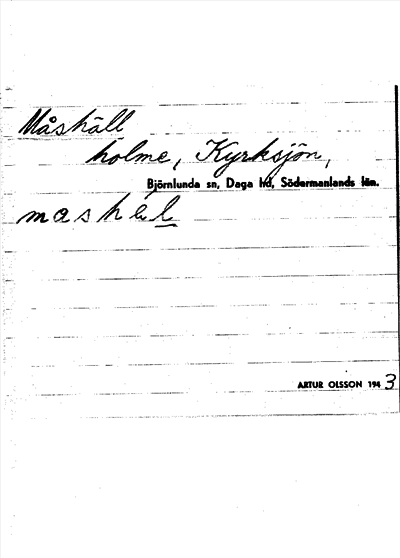 Måshäll
holme, Kyrksjön,
Björnlunda sn, Daga hd, Södermanlands län.
ARTUR OLSSON 1943